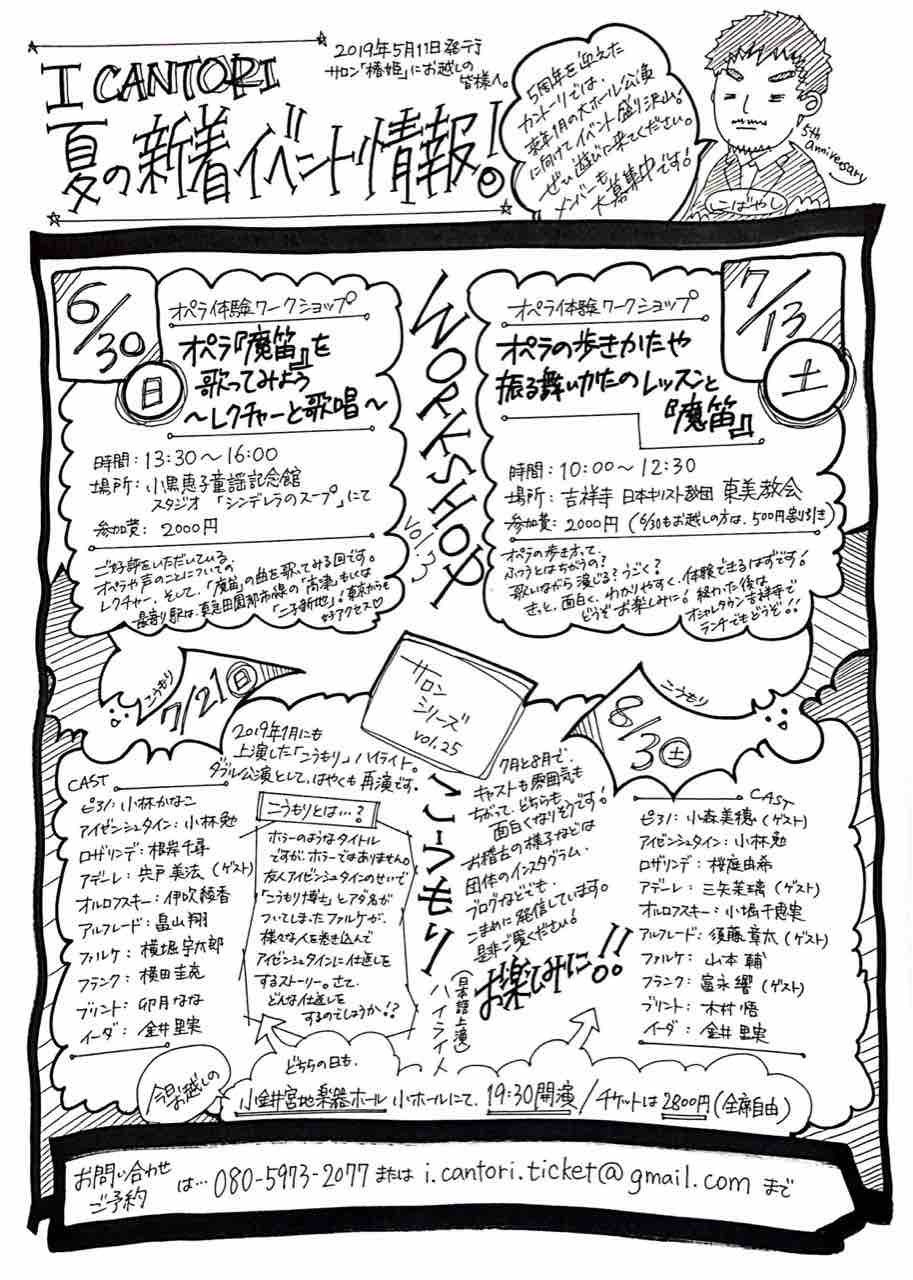 I CANTORI
夏の新着イベント情報!
2019年5月11日発行
サロン「椿姫」にお越しの
皆様へ。
5周年を迎えた
カントーリでは、
来年1月の大ホール公演
に向けてイベント盛り沢山!
ぜひ遊びに来てください。
メンバーも
大募集中です!
5th anniversary
こばやし
6/30
日
オペラ体験ワークショップ
オペラ『魔笛』を
歌ってみよう
〜レクチャーと歌唱〜
時間:13:30〜16:00
場所:小黒恵子童謡記念館
スタジオ「シンデレラのスープ」にて
参加費:2000円
ご好評をいただいている、
オペラや声のことについての
レクチャー、そして、「魔笛」の曲を歌ってみる回です。
最寄り駅は、東急田園都市線の「高津」もしくは
「二子新地」!東京からも
好アクセス♡
WORKSHOP
7/13
土
オペラ体験ワークショップ
オペラの歩きかたや
振る舞いかたのレッスンと
『魔笛』
時間:10:00〜12:30
場所:吉祥寺 日本キリスト教団 東美教会
参加費:2000円(6/30もお越しの方は、500円割引き)
オペラの歩き方って、
ふつうとはちがうの?
歌いながら演じる?うごく?
きっと、面白く、わかりやすく、体験できるはずです!
どうぞお楽しみに!終わった後は
オシャレタウン吉祥寺で
ランチでもどうぞ!!
こうもり
7/21日
CAST
ピアノ:小林かなこ
アイゼンシュタイン:小林勉
ロザリンデ:根岸千尋
アデーレ:宍戸美法(ゲスト)
オルロフスキー:伊吹綾香
アルフレード:畠山翔
ファルケ:横堀宇太郎
フランク:横田圭亮
ブリント:卯月なな
イーダ:金井里実
サロン
シリーズ
vol.25
こうもり
(日本語上演)
ハイライト
2019年1月にも
上演した「こうもり」ハイライト。
ダブル公演として、はやくも再演です。
こうもりとは…?
ホラーのようなタイトル
ですが、ホラーではありません。
友人アイゼンシュタインのせいで
「こうもり博士」とアダ名が
ついてしまったファルケが、
様々な人を巻き込んで
アイゼンシュタインに仕返しを
するストーリー。さて、
どんな仕返しを
するのでしょうか!?
7月と8月で、
キャストも雰囲気も
ちがって、どちらも
面白くなりそうです!
お稽古の様子などは
団体のインスタグラム、
ブログなどでも、
こまめに発信しています。
是非ご覧ください!
お楽しみに!!
こうもり
8/3土
CAST
ピアノ:小森美穂(ゲスト)
アイゼンシュタイン:小林勉
ロザリンデ:桜庭由希
アデーレ:三矢茉璃(ゲスト)
オルロフスキー:小堀千恵実
アルフレード:須藤章太(ゲスト)
ファルケ:山本輔
フランク:富永響(ゲスト)
ブリント:木村悟
イーダ:金井里実
どちらの日も、
小金井宮地楽器ホール 小ホールにて、19:30開演/チケットは2800円(全席自由)
お問い合わせ
ご予約
は…080-5973-2077または i.cantori.ticket@gmail.com まで